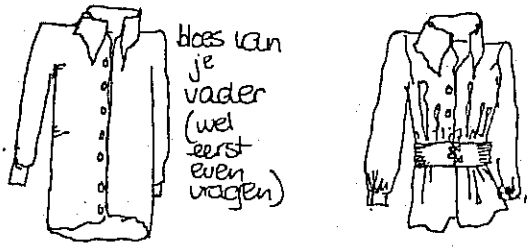 bloes van
je
vader
(wel
eerst
even
vragen)